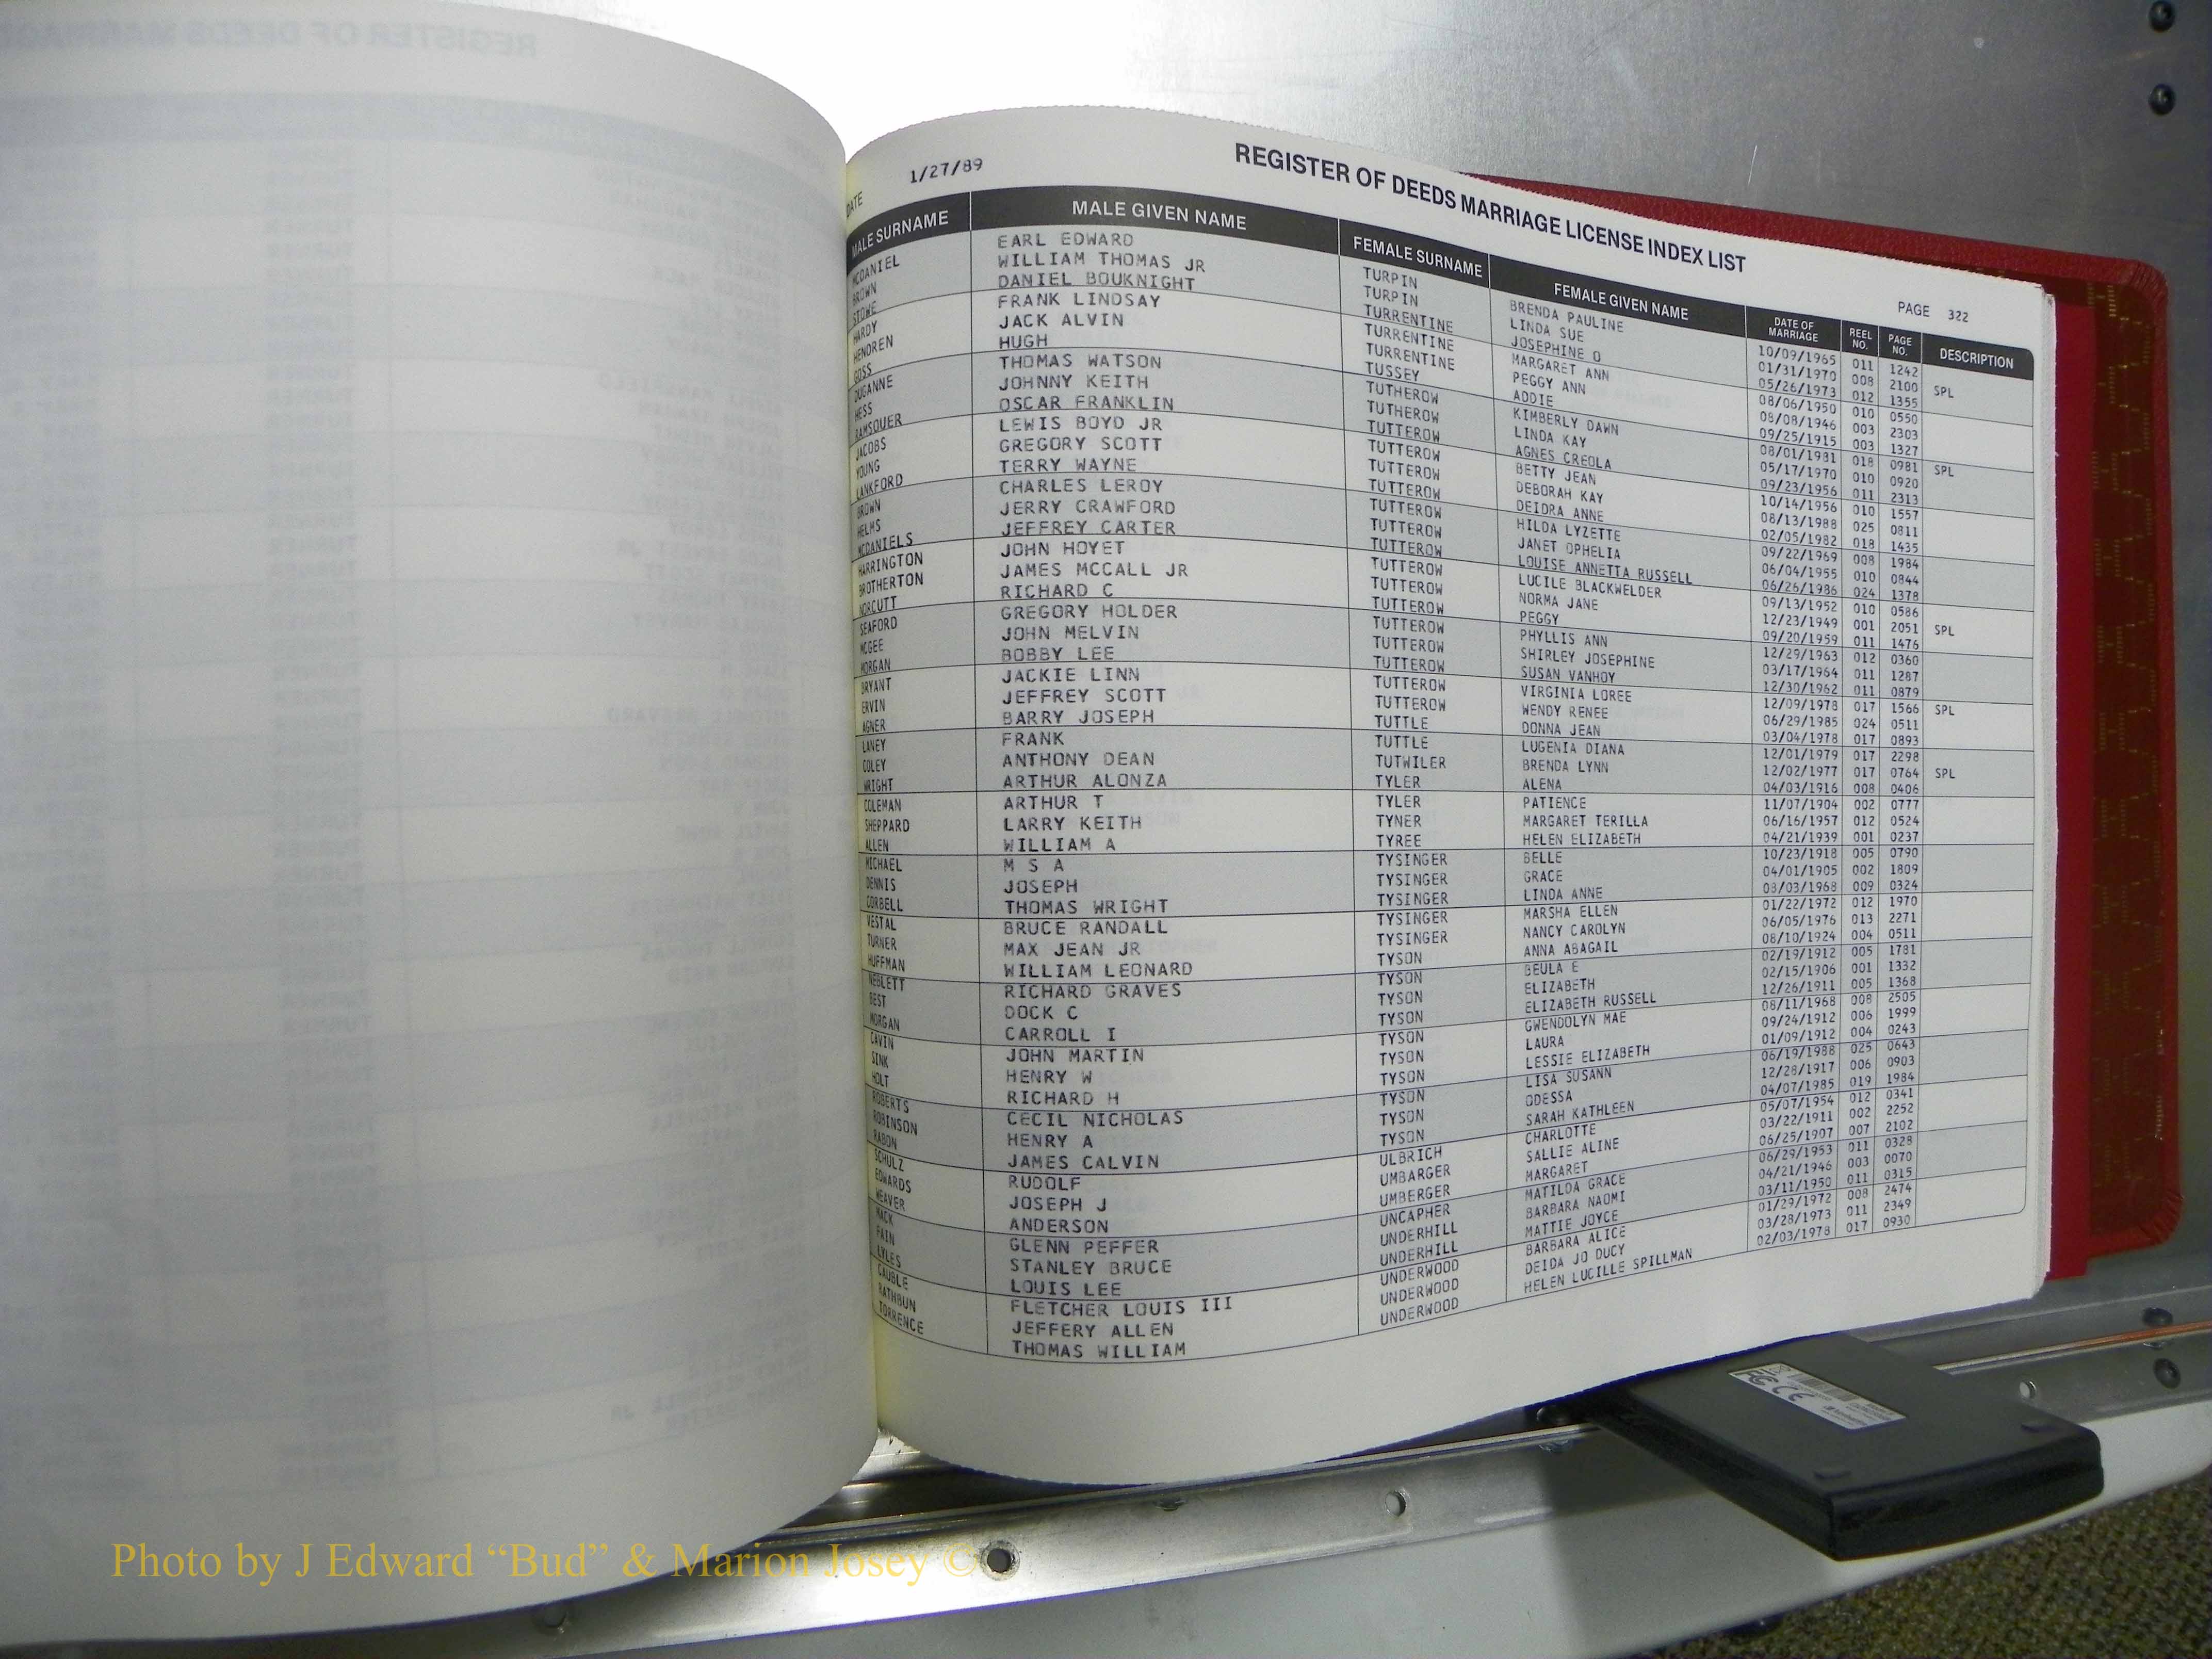 DATE 1/27/89 REGISTER OF DEEDS MARRIAGE LICENSE INDEX LIST PAGE 322
MALE SURNAME MALE GIVEN NAME FEMALE SURNAME FEMALE GIVEN NAME DATE OF MARRIAGE REEL NO. PAGE NO. DESCRIPTION
MCDANIEL EARL EDWARD TURPIN BRENDA PAULINE 10/09/1965 011 1242
BROWN WILLIAM THOMAS JR TURPIN LINDA SUE 01/31/1970 008 2100 SPL
STOWE DANIEL BOUKNIGHT TURRENTINE JOSEPHINE O 05/26/1973 012 1355
HARDY FRANK LINDSAY TURRENTINE MARGARET ANN 08/06/1950 010 0550
HENDREN JACK ALVIN TURRENTINE PEGGY ANN 08/08/1946 003 2303
GOSS HUGH TUSSEY ADDIE 09/25/1915 003 1327
DUGANNE THOMAS WATSON TUTHEROW KIMBERLY DAWN 08/01/1981 018 0981 SPL
HESS JOHNNY KEITH TUTHEROW LINDA KAY 05/17/1970 010 0920
RAMSOUER OSCAR FRANKLIN TUTTEROW AGNES CREOLA 09/23/1956 011 2313
JACOBS LEWIS BOYD JR TUTTEROW BETTY JEAN 10/14/1956 010 1557
YOUNG GREGORY SCOTT TUTTEROW DEBORAH KAY 08/13/1988 025 0811
LANKFORD TERRY WAYNE TUTTEROW DEIDRA ANNE 02/05/1982 018 1435
BROWN CHARLES LEROY TUTTEROW HILDA LYZETTE 09/22/1969 008 1984
HELMS JERRY CRAWFORD TUTTEROW JANET OPHELIA 06/04/1955 010 0844
MCDANIELS JEFFREY CARTER TUTTEROW LOUISE ANNETTA RUSSELL 06/26/1986 024 1378
HARRINGTON JOHN HOYET TUTTEROW LUCILE BLACKWELDER 09/13/1952 010 0586
BROTHERTON JAMES MCCALL JR TUTTEROW NORMA JANE 12/23/1949 001 2051 SPL
NORCUTT RICHARD C TUTTEROW PEGGY 09/20/1959 011 1476
SEAFORD GREGORY HOLDER TUTTEROW PHYLLIS ANN 12/29/1963 012 0360
MCGEE JOHN MELVIN TUTTEROW SHIRLEY JOSEPHINE 03/17/1964 011 1287
MORGAN BOBBY LEE TUTTEROW SUSAN VANHOY 12/30/1962 011 0879
BRYANT JACKIE LINN TUTTEROW VIRGINIA LOREE 12/09/1978 017 1566 SPL
ERVIN JEFFREY SCOTT TUTTEROW WENDY RENEE 06/29/1985 024 0511
AGNER BARRY JOSEPH TUTTLE DONNA JEAN 03/04/1978 017 0893
LANEY FRANK TUTTLE LUGENIA DIANA 12/01/1979 017 2298
COLEY ANTHONY DEAN TUTWILER BRENDA LYNN 12/02/1977 017 0764 SPL
WRIGHT ARTHUR ALONZA TYLER ALENA 04/03/1916 008 0406
COLEMAN ARTHUR T TYLER PATIENCE 11/07/1904 002 0777
SHEPPARD LARRY KEITH TYNER MARGARET TERILLA 06/16/1957 012 0524
ALLEN WILLIAM A TYREE HELEN ELIZABETH 04/21/1939 001 0237
MICHAEL M S A TYSINGER BELLE 10/23/1918 005 0790
DENNIS JOSEPH TYSINGER GRACE 04/01/1905 002 1809
CORBELL THOMAS WRIGHT TYSINGER LINDA ANNE 03/03/1968 009 0324
VESTAL BRUCE RANDALL TYSINGER MARSHA ELLEN 01/22/1972 012 1970
TURNER MAX JEAN JR TYSINGER NANCY CAROLYN 06/05/1976 013 2271
HUFFMAN WILLIAM LEONARD TYSON ANNA ABAGAIL 08/10/1924 004 0511
NEBLETT RICHARD GRAVES TYSON BEULA E 02/19/1912 005 1781
BEST DOCK C TYSON ELIZABETH 02/15/1906 001 1332
MORGAN CARROLL I TYSON ELIZABETH RUSSELL 12/26/1911 005 1368
CAVIN JOHN MARTIN TYSON GWENDOLYN MAE 08/11/1968 008 2505
SINK HENRY W TYSON LAURA 09/24/1912 006 1999
HOLT RICHARD H TYSON LESSIE ELIZABETH 01/09/1912 004 0243
ROBERTS CECIL NICHOLAS TYSON LISA SUSANN 06/19/1988 025 0643
ROBINSON HENRY A TYSON ODESSA 12/28/1917 006 0903
RABON JAMES CALVIN TYSON SARAH KATHLEEN 04/07/1985 019 1984
SCHULZ RUDOLF ULBRICH CHARLOTTE 05/07/1954 012 0341
EDWARDS JOSEPH J UMBARGER SALLIE ALINE 03/22/1911 002 2252
WEAVER ANDERSON UMBERGER MARGARET 06/25/1907 007 2102
MACK GLENN PEFFER UNCAPHER MATILDA GRACE 06/29/1953 011 0328
PAIN STANLEY BRUCE UNDERHILL BARBARA NAOMI 04/21/1946 003 0070
LYLES LOUIS LEE UNDERHILL MATTIE JOYCE 03/11/1950 011 0315
CAUBLE FLETCHER LOUIS III UNDERWOOD BARBARA ALICE 01/29/1972 008 2474
RATHBUN JEFFERY ALLEN UNDERWOOD DEIDA JO DUCY 03/28/1973 011 2349
TORRENCE THOMAS WILLIAM UNDERWOOD HELEN LUCILLE SPILLMAN 02/03/1978 017 0930
Photo by J Edward “Bud” & Marion Josey ©